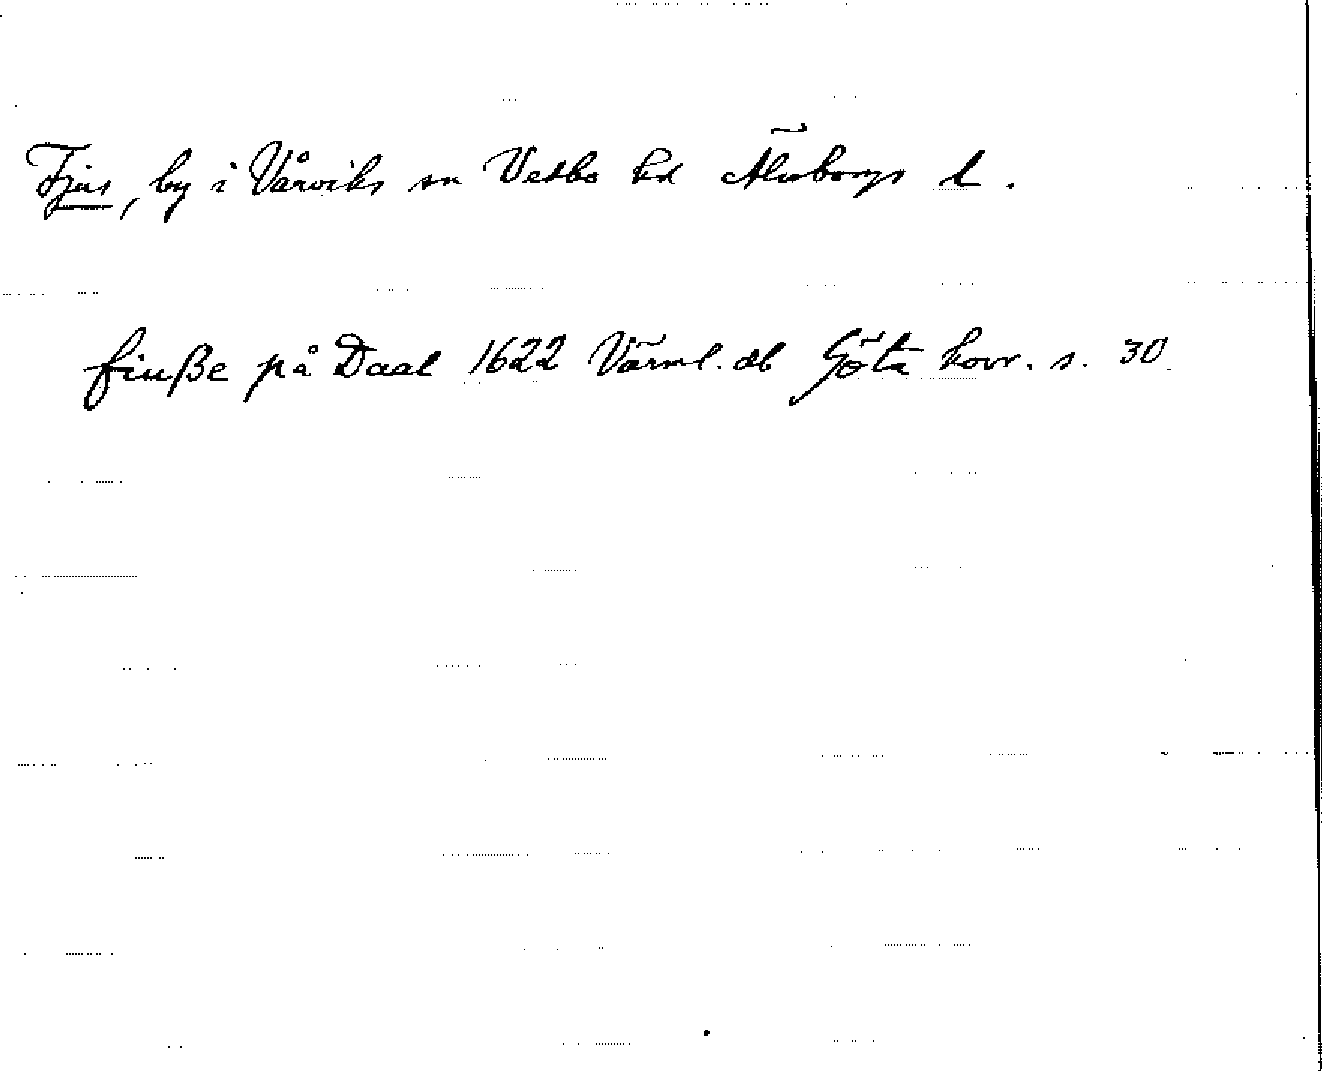 Fjus, by i Vårviks sn Vedbo hd Älvsborgs l.
fiuße på Daal 1622 Värml. db Göta hovr. s. 30